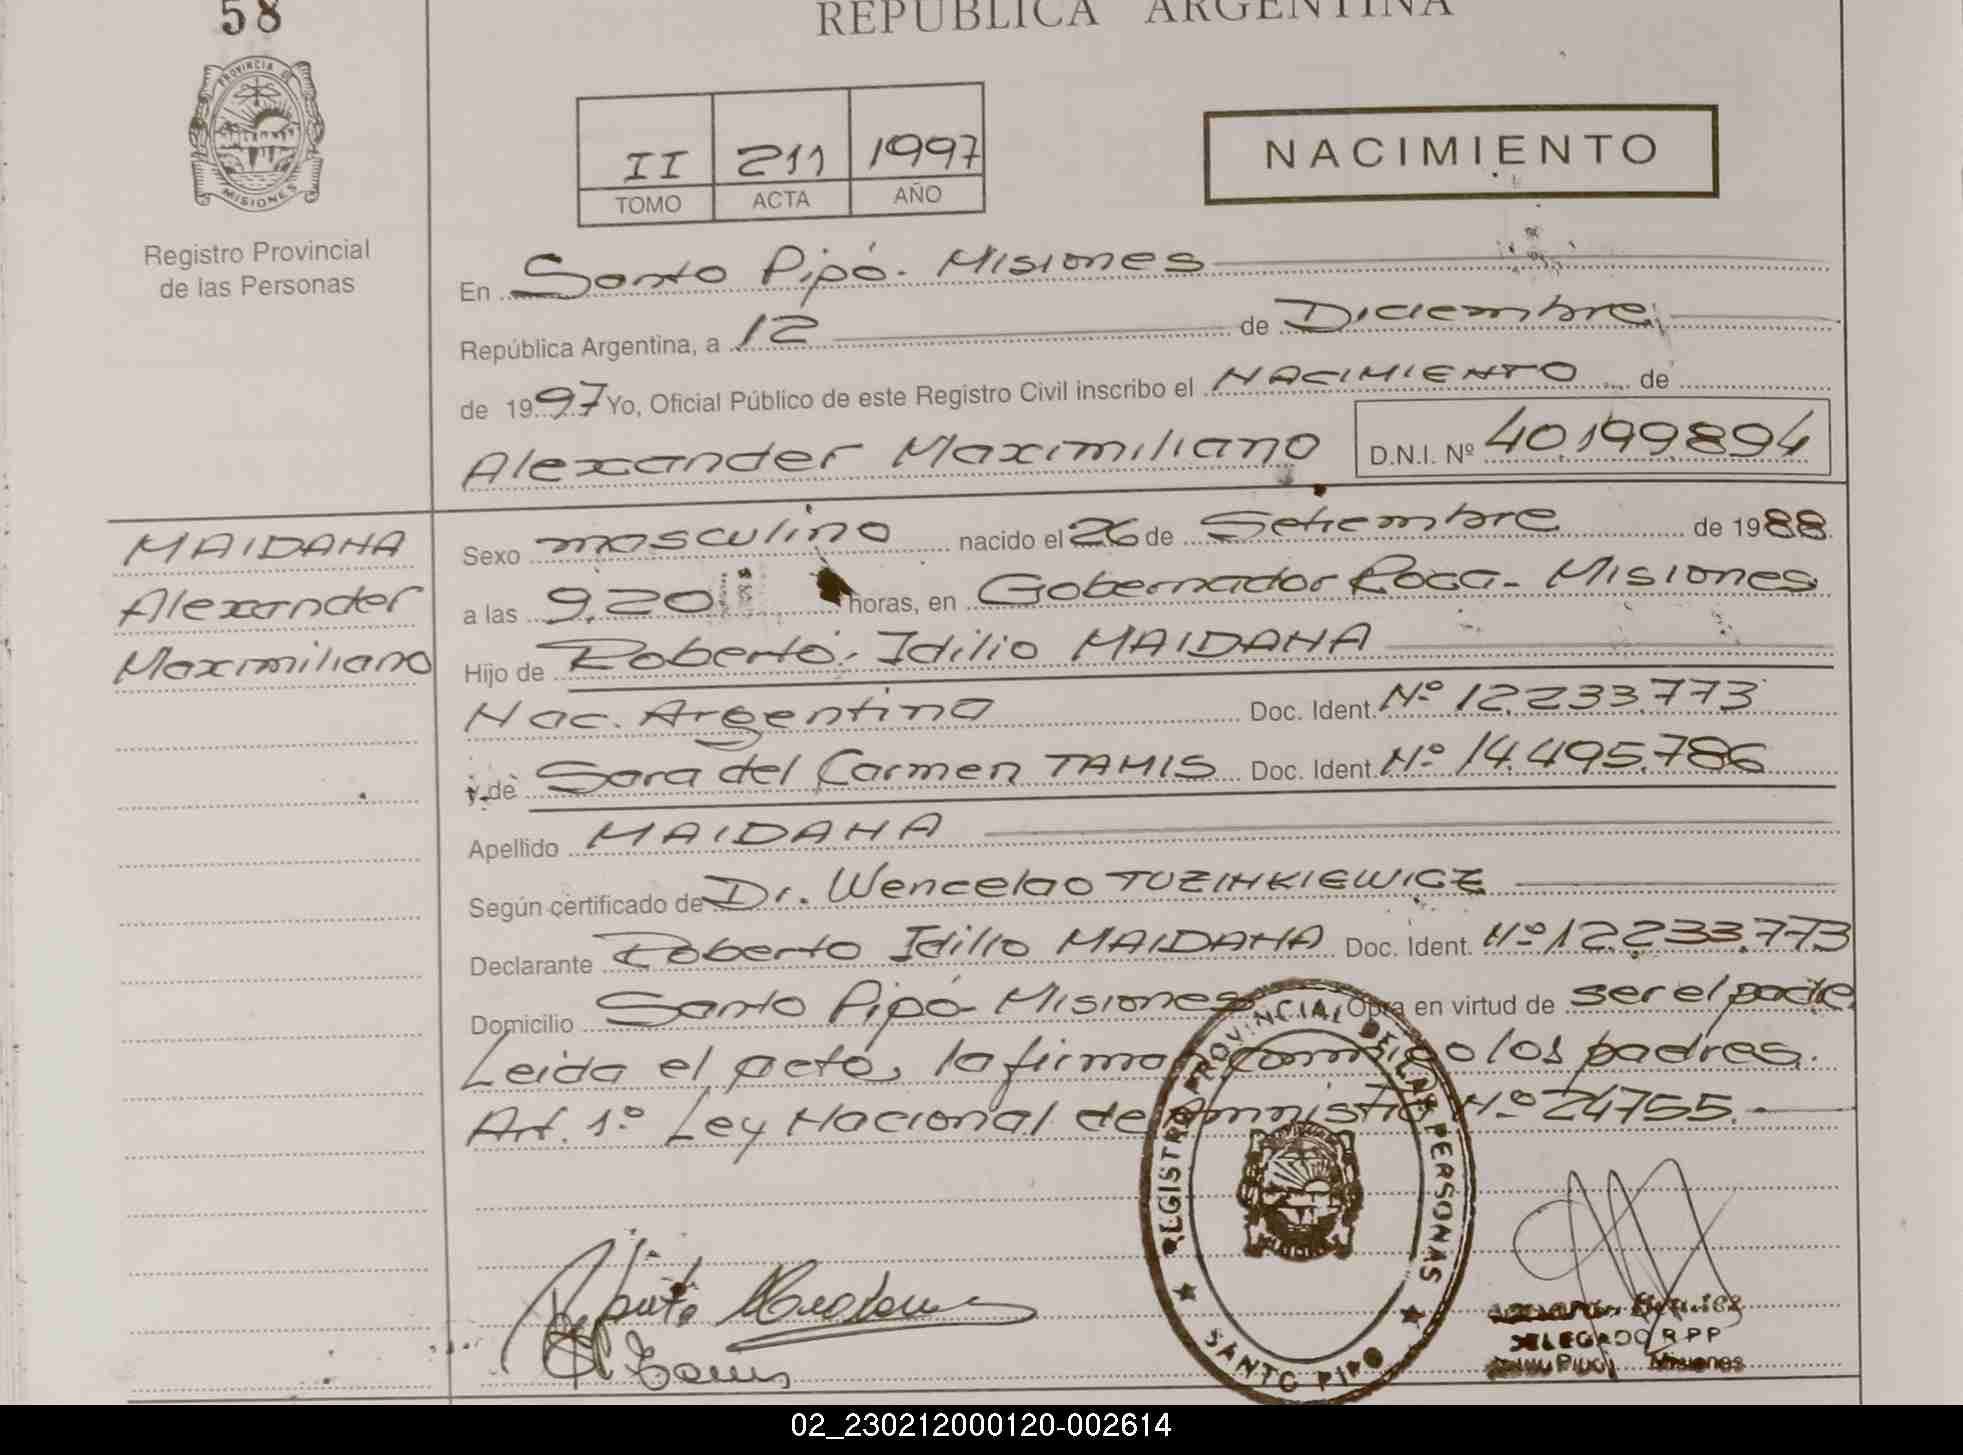 58
REPUBLICA ARGENTINA
PROVINCIA DE
MISIONES
Registro Provincial
de las Personas
II 211 1997
TOMO ACTA AÑO
NACIMIENTO
En Santo Pipó. Misiones
República Argentina, a 12 de Diciembre
de 1997 Yo, Oficial Público de este Registro Civil inscribo el NACIMIENTO de
Alexander Maximiliano D.N.I. Nº 40.199.894
MAIDANA
Alexander
Maximiliano
Sexo masculino nacido el 26 de Setiembre de 1988
a las 9.20 horas, en Gobernador Roca - Misiones
Hijo de Roberto Idilio MAIDANA
Nac. Argentina Doc. Ident. Nº 12.233.773
y de Sara del Carmen TAMIS Doc. Ident. Nº 14.495.786
Apellido MAIDANA
Según certificado de Dr. Wencelao TUZINKIEWICZ
Declarante Roberto Idilio MAIDANA Doc. Ident. Nº 12.233.773
Domicilio Santo Pipó - Misiones Obra en virtud de ser el padre
Leida el acta, la firman conmigo los padres.
Art. 1º Ley Nacional de Amnistia Nº 24755.
REGISTRO PROVINCIAL DE LAS PERSONAS
SANTO PIPO
DELEGADO R P P
Misiones
02_230212000120-002614